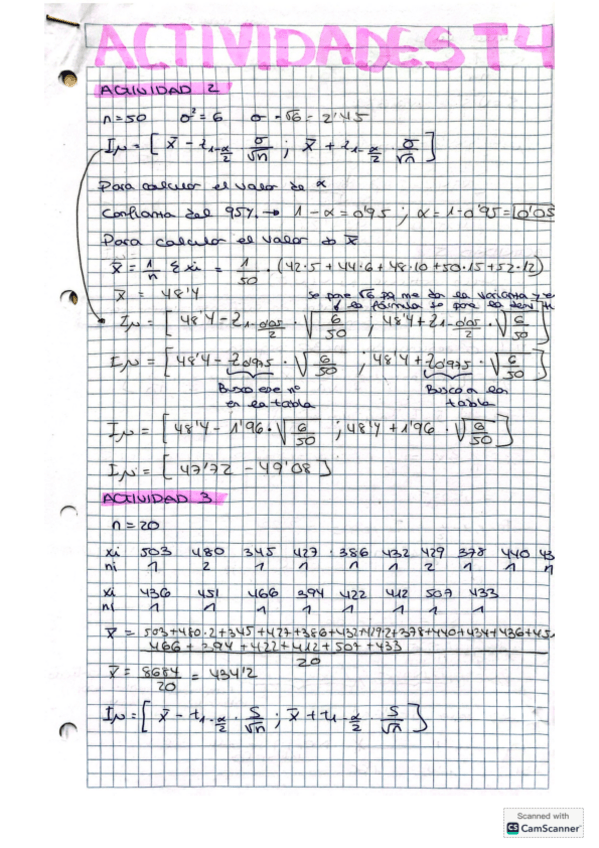 ACTIVIDADES T4
ACTIVIDAD 2
n=50 σ²=6 σ=√6= 2'45
Iμ = [ x̄ - z1-α/2 · σ/√n ; x̄ + z1-α/2 · σ/√n ]
Para calcular el valor de α
Confianza del 95% → 1-α=0'95 ; α=1-0'95=0'05
Para calcular el valor de x̄
x̄ = 1/n Σxi = 1/50 · (42·5 + 44·6 + 48·10 + 50·15 + 52·12)
x̄ = 48'4
se pone √6 pq me da la varianza y en
y la fórmula se pone la desv
Iμ = [ 48'4 - z1-0'05/2 · √6/50 ; 48'4 + z1-0'05/2 · √6/50 ]
Iμ = [ 48'4 - z0'975 · √6/50 ; 48'4 + z0'975 · √6/50 ]
Busco ese nº Busco en la
en la tabla tabla
Iμ = [ 48'4 - 1'96 · √6/50 ; 48'4 + 1'96 · √6/50 ]
Iμ = [ 47'72 - 49'08 ]
ACTIVIDAD 3
n = 20
xi 503 480 345 427 386 432 429 378 440 43
ni 1 2 1 1 1 1 2 1 1 1
xi 436 451 466 394 422 412 507 433
ni 1 1 1 1 1 1 1 1
x̄ = 503+480·2+345+427+386+432+429·2+378+440+434+436+45
466 + 394 + 422 + 412 + 507 + 433
20
x̄ = 8684/20 = 434'2
Iμ = [ x̄ - t1-α/2 · S/√n ; x̄ + t1-α/2 · S/√n ]
Scanned with
CS CamScanner